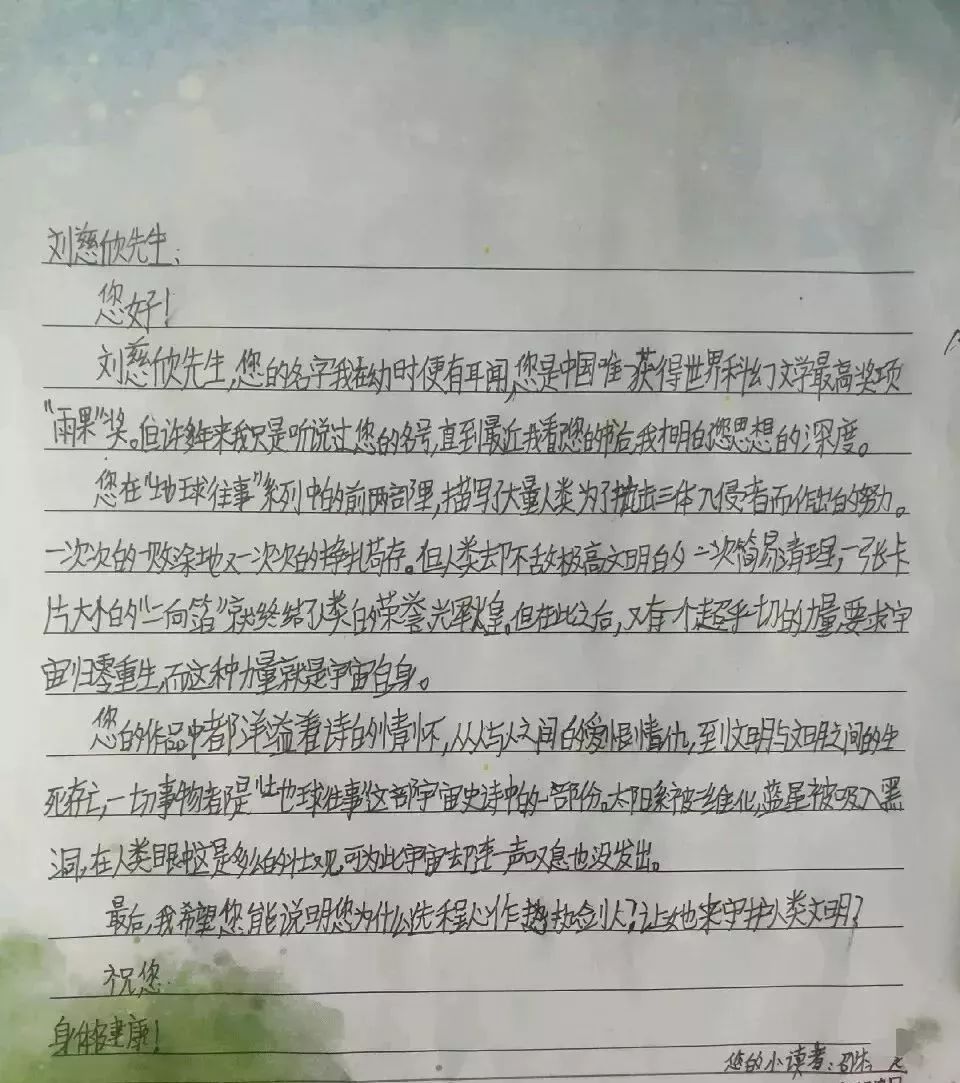 刘慈欣先生:
您好!
刘慈欣先生,您的名字我在幼时便有耳闻,您是中国唯一获得世界科幻文学最高奖项
“雨果”奖。但许多年来我只是听说过您的名号,直到最近我看您的书后,我才明白您思想的深度。
您在“地球往事”系列中的前两部里,描写了大量人类为了抗击三体入侵者而作出的努力。
一次次的一败涂地又一次次的挣扎苟存。但人类却不敌极高文明的一次简易清理,一张卡
片大小的“二向箔”就终结了人类的荣誉、光辉煌。但在此之后,又有一个超乎一切的力量要求宇
宙归零重生,而这种力量就是宇宙自身。
您的作品中都洋溢着诗的情怀,从人与人之间的爱恨情仇,到文明与文明之间的生
死存亡,一切事物都是“地球往事”这部宇宙史诗中的一部份。太阳系被二维化,蓝星被吸入黑
洞,在人类眼中这是多么的壮观,可为此宇宙却连一声叹息也没发出。
最后,我希望您能说明您为什么选程心作为执剑人?让她来守护人类文明?
祝您
身体健康!
您的小读者: